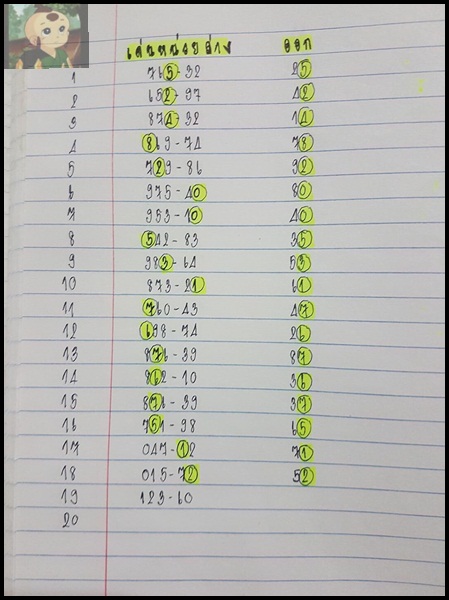 เด่นหน่วยล่าง ออก
1 765-32 25
2 652-97 42
3 874-32 14
4 869-74 78
5 729-86 92
6 975-40 80
7 953-10 40
8 542-83 35
9 983-64 53
10 873-21 61
11 760-43 47
12 698-74 26
13 876-39 87
14 862-10 36
15 876-39 37
16 751-98 65
17 047-12 71
18 015-72 52
19 123-60
20